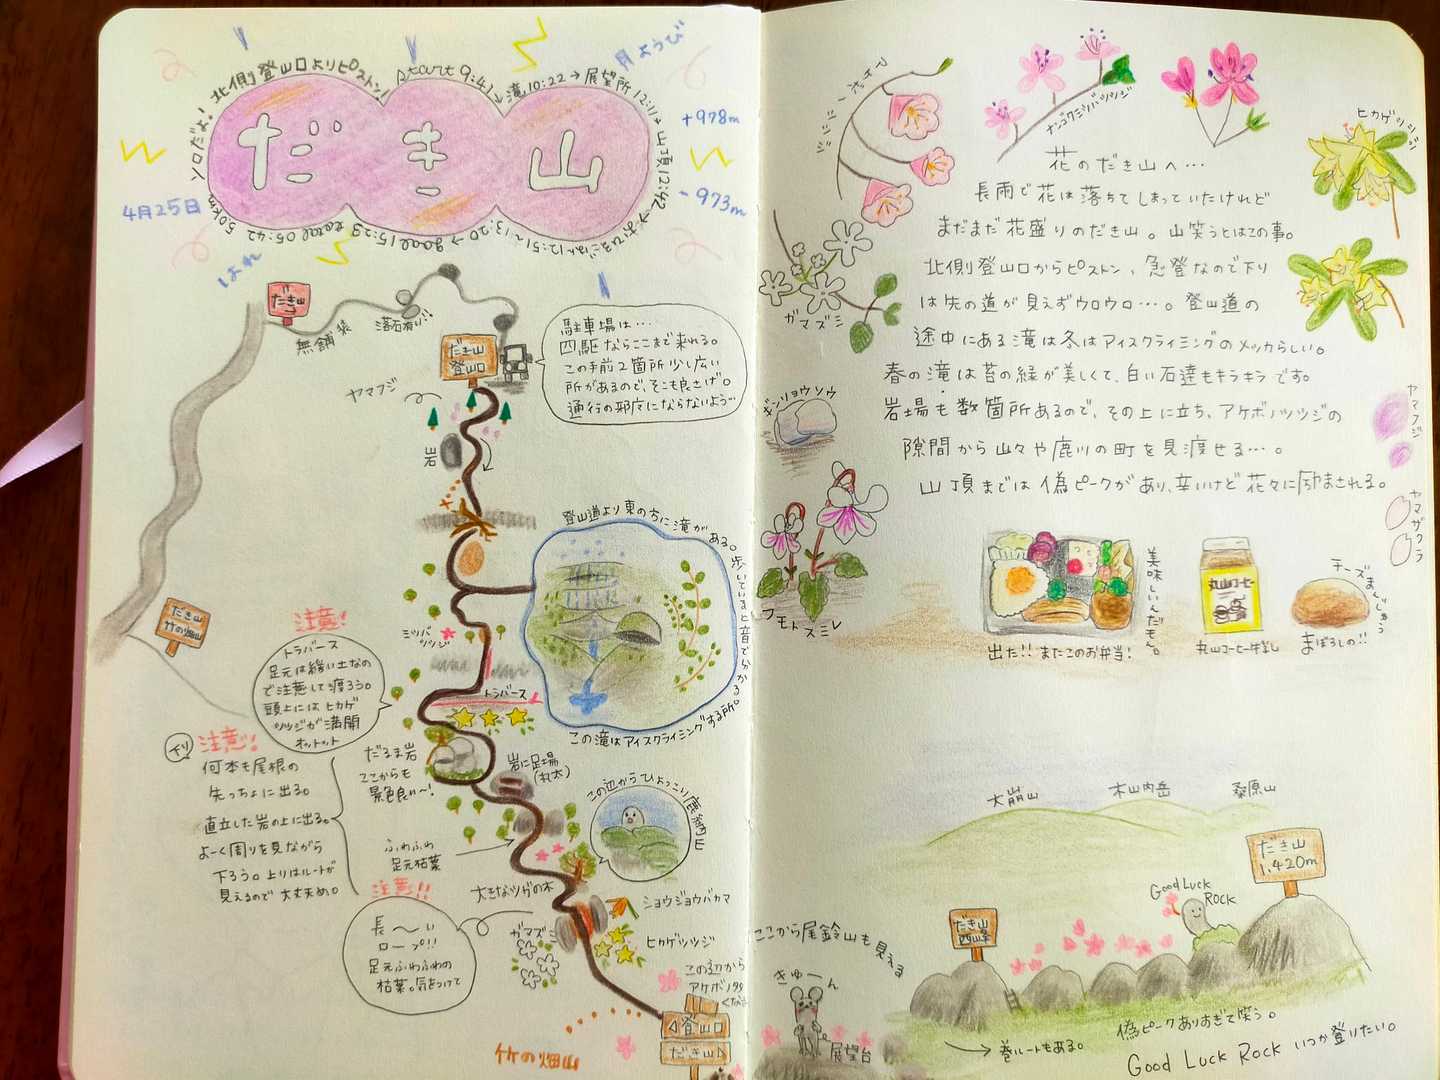 だき山
ソロだよ！北側登山口よりピストン
start 9:41→滝10:22→展望所12:11→山頂12:42→おひるごはん12:51〜13:20→goal 15:23 total 05:42 5.0km
月ようび
+978m
-973m
4月25日
はれ
だき山
無舗装
落石有り!!
だき山
登山口
駐車場は…
四駆ならここまで来れる。
この手前2箇所少し広い
所があるので、そこも良さげ。
通行の邪魔にならないよう…
ヤマフジ
岩
登山道より東の方に滝がある。歩いていると音で分かる。
この滝はアイスクライミングする所。
だき山
竹の畑山
注意！
トラバース
足元は緩い土なの
で注意して渡ろう。
頭上にはヒカゲ
ツツジが満開
オットット
ミツバ
ツツジ
トラバース
下り
注意！
何本も尾根の
先っちょに出る。
直立した岩の上に出る。
よーく周りを見ながら
下ろう。上りはルートが
見えるので大丈夫め。
だるま岩
ここからも
景色良い〜！
岩に足場
(丸太)
この辺からひょっこり鹿納山
ふわふわ
足元枯葉
注意!!
長〜い
ロープ!!
足元ふわふわの
枯葉。気をつけて
大きなツガの木
ガマズミ
ショウジョウバカマ
ヒカゲツツジ
この辺から
アケボノ
竹の畑山
登山口
だき山
ナンゴクミツバツツジ
ヒカゲツツジ
ガマズミ
ギンリョウソウ
フモトスミレ
花のだき山へ…
長雨で花は落ちてしまっていたけれど
まだまだ花盛りのだき山。山笑うとはこの事。
北側登山口からピストン、急登なので下り
は先の道が見えずウロウロ…。登山道の
途中にある滝は冬はアイスクライミングのメッカらしい。
春の滝は苔の緑が美しくて、白い石達もキラキラです。
岩場も数箇所あるので、その上に立ち、アケボノツツジの
隙間から山々や鹿川の町を見渡せる…。
山頂までは偽ピークがあり、辛いけど花々に励まされる。
ヤマフジ
ヤマザクラ
出た!!またこのお弁当！
美味しいんだもん。
丸山コーヒー
丸山コーヒー牛乳
チーズまんじゅう
まぼろしの!!
大崩山
木山内岳
桑原山
だき山
1,420m
Good Luck
Rock
だき山
西峰
ここから尾鈴山も見える
きゅーん
展望台
巻ルートもある。
偽ピークありすぎて笑う。
Good Luck Rock いつか登りたい。